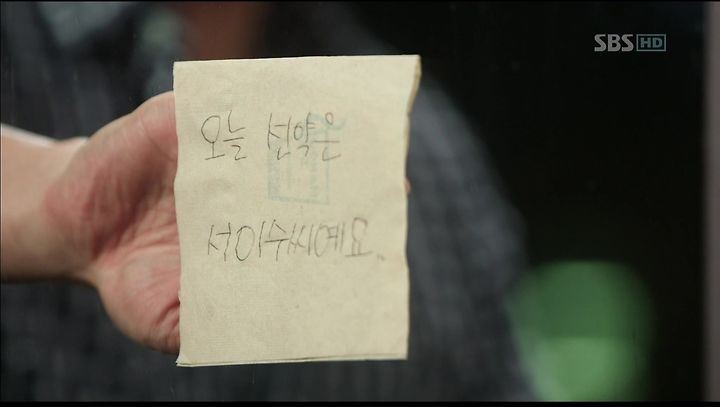 SBS HD
오늘 선약은
서이수씨예요.